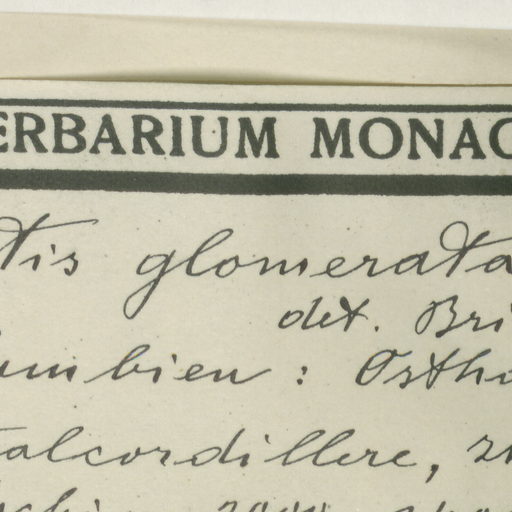 ERBARIUM MONAC
tis glomerata
det. Bri
umbien: Osth
talcordillere,